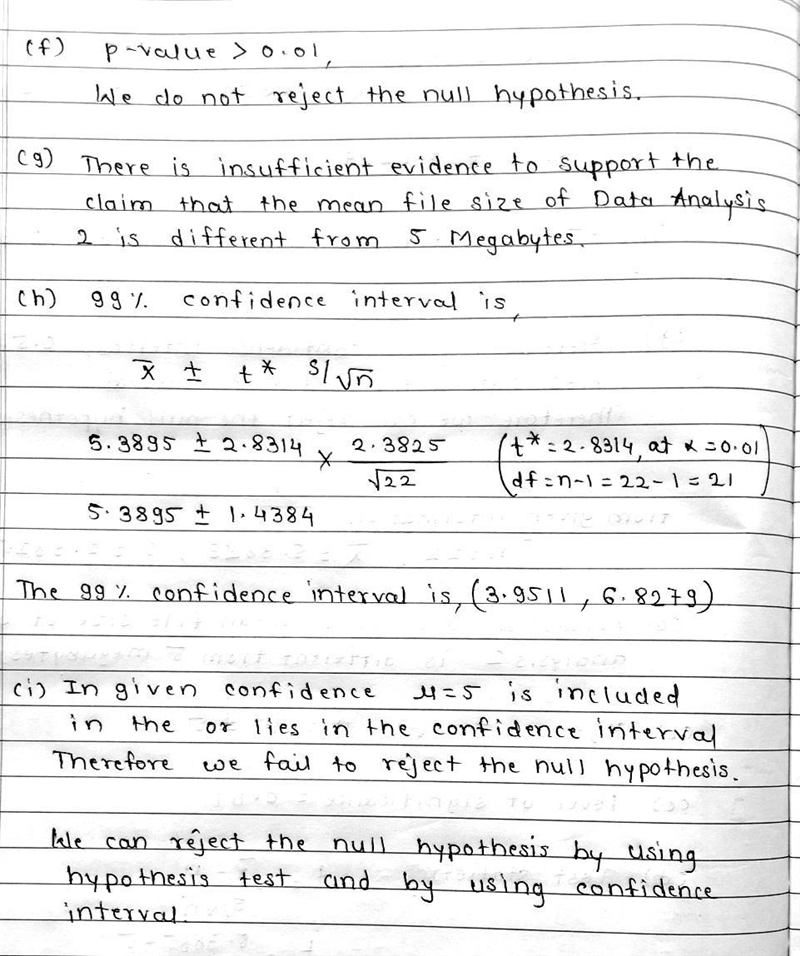 (f) p-value > 0.01,
We do not reject the null hypothesis.
(g) There is insufficient evidence to support the
claim that the mean file size of Data Analysis
2 is different from 5 Megabytes.
(h) 99 % confidence interval is,
x̄ ± t* s/√n
5.3895 ± 2.8314 × 2.3825/√22 (t* = 2.8314, at α = 0.01
df = n-1 = 22-1 = 21)
5.3895 ± 1.4384
The 99 % confidence interval is, (3.9511, 6.8279)
(i) In given confidence μ=5 is included
in the or lies in the confidence interval
Therefore we fail to reject the null hypothesis.
We can reject the null hypothesis by using
hypothesis test and by using confidence
interval.